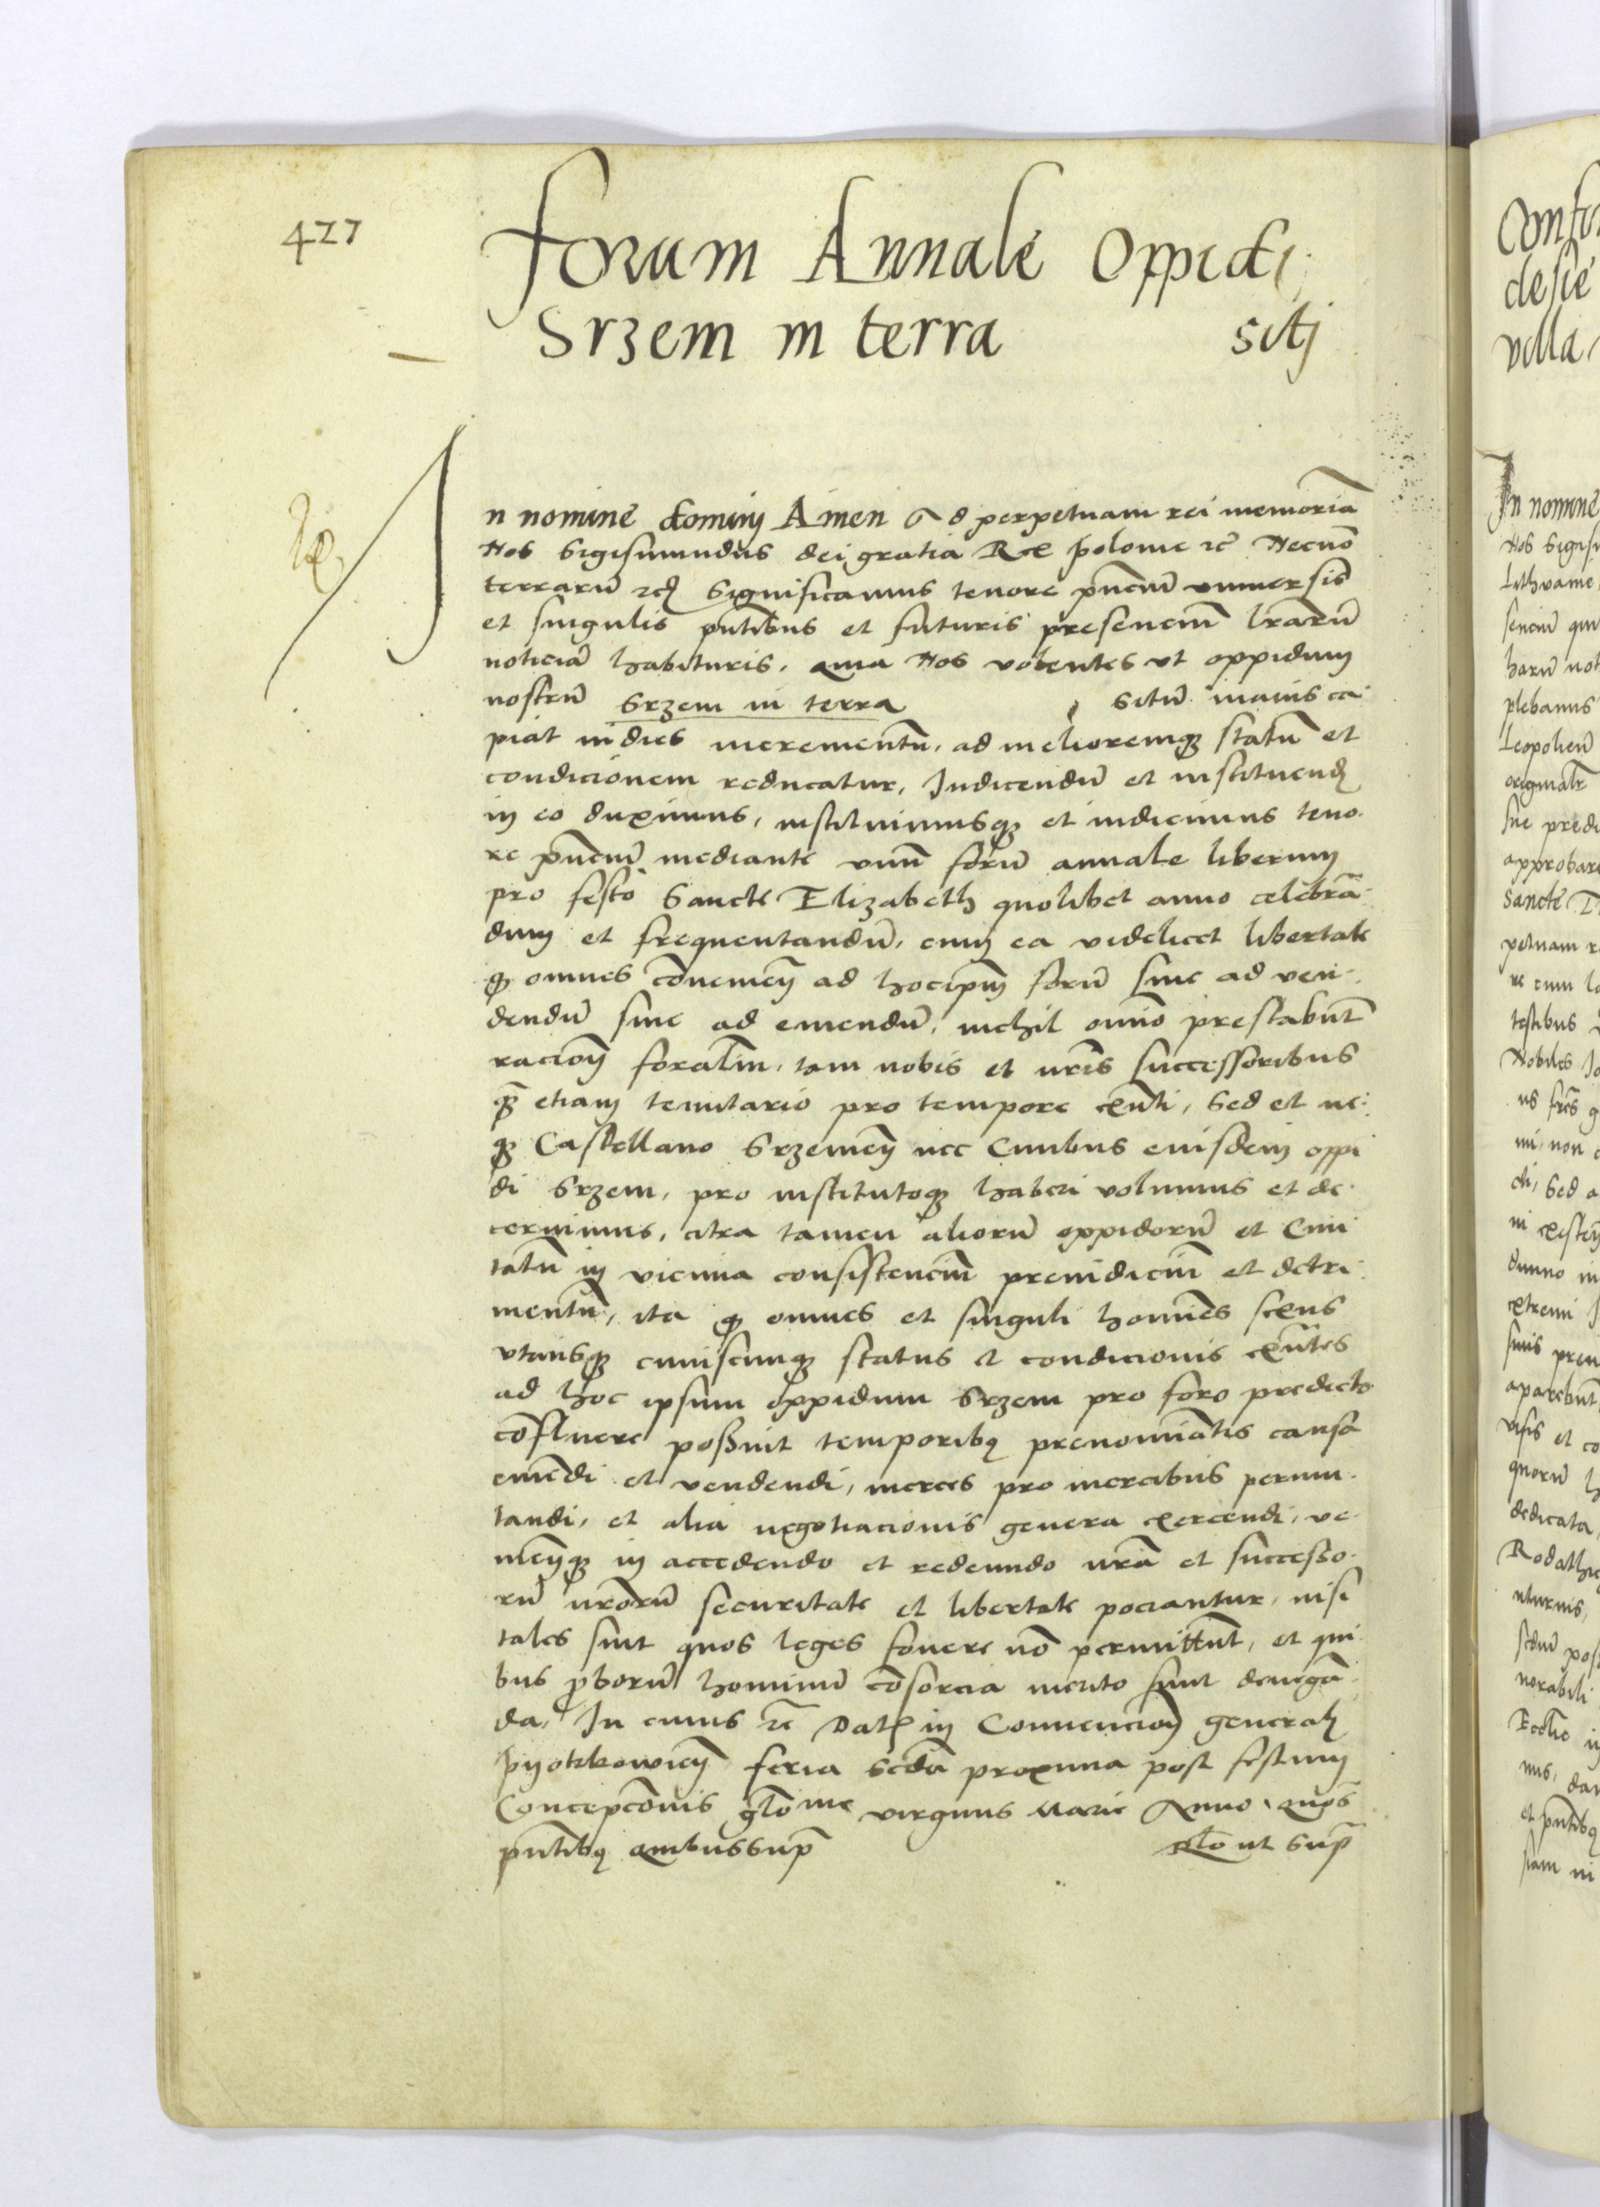 427
Forum Annale Oppidi
Srzem in terra sitj
In nomine dominj Amen Ad perpetuam rei memoriã
Nos Sigismundus dei gratia Rex polonie rc̃ Necnõ
terrarũ rcꝫ Significamus tenore pñciũ vniuersis
et singulis pñtibus et futuris presenciũ lrarũ
noticiã habituris, quia Nos volentes vt oppidum
nostrũ Srzem in terra sitũ maius ca-
piat indies incrementũ, ad melioremqꝫ statũ et
condicionem reducatur, Indicendũ et instituendꝫ
in eo duximus, instituimusqꝫ et indicimus teno-
re pñciũ mediante vnũ forũ annale liberum
pro festo Sancte Elizabeth quolibet anno celebrã-
dum et frequentandũ, cum ea videlicet libertate
qꝫ omnes cõuenieñ ad hocipm̃ forũ siue ad ven-
dendũ siue ad emendũ, nichil omĩo prestabũt
racioñ foraliũ, tam nobis et nr̃is successoribus
qꝫ etiam tenutario pro tempore exñti, sed et ne-
qꝫ Castellano Srzemeñ nec Ciuibus eiusdem oppi
di Srzem, pro institutoqꝫ haberi volumus et de-
cernimus, citra tamen aliorũ oppidorũ et Ciui
tatũ in vicinia consistenciũ preiudiciũ et detri-
mentũ, ita qꝫ omnes et singuli homĩes sexus
vtriusqꝫ cuiuscunqꝫ status et condicionis exñtes
ad hoc ipsum oppidum Srzem pro foro predicto
cõfluere possint temporibꝫ prenomiãtis causa
emẽdi et vendendi, merces pro mercibus permu-
tandi, et alia negotiacionis genera exercendi, ve-
nieñqꝫ in accedendo et redeundo nrã et successo-
rũ nrorũ securitate et libertate pociantur, nisi
tales sint quos leges fouere nõ permittũt, et qui-
bus proborũ hominũ cõsorcia merito sunt denegã-
da, In cuius rc̃ Datꝫ in Conuencioñ generali
Pyotrkowieñ feria scđa proxima post festum
Concepcõnis glõse virginis Marie Anno, quos
pñtibꝫ quibus sup̃ Rlo ut sup̃